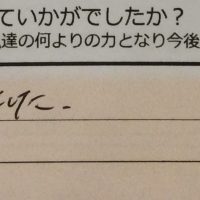 ていかがでしたか？
達の何よりの力となり今後
した.